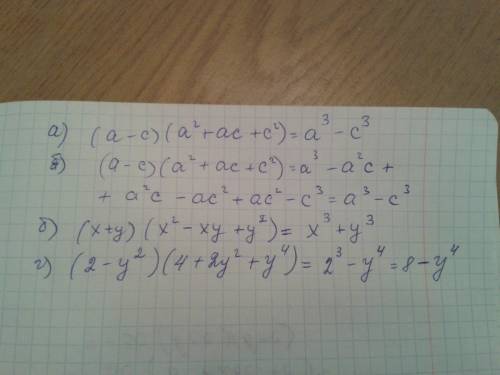 а) (a-c)(a²+ac+c²)=a³-c³
б) (a-c)(a²+ac+c²)=a³-a²c+
+a²c-ac²+ac²-c³=a³-c³
б) (x+y)(x²-xy+y²)=x³+y³
г) (2-y²)(4+2y²+y⁴)=2³-y⁴=8-y⁴